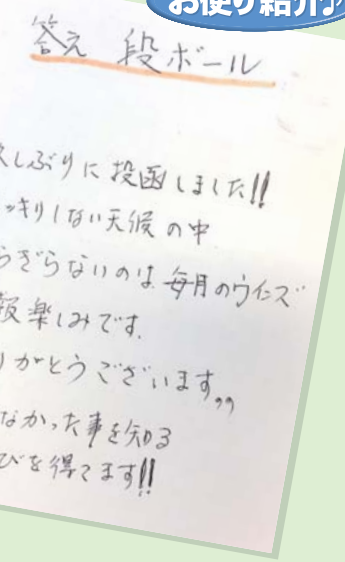 お便り紹介♪
答え 段ボール
久しぶりに投函しました!!
ッキリしない天候の中
らぎらないのは毎月のウインズ
報楽しみです。
りがとうございます,,
なかった事を知る
びを得てます!!